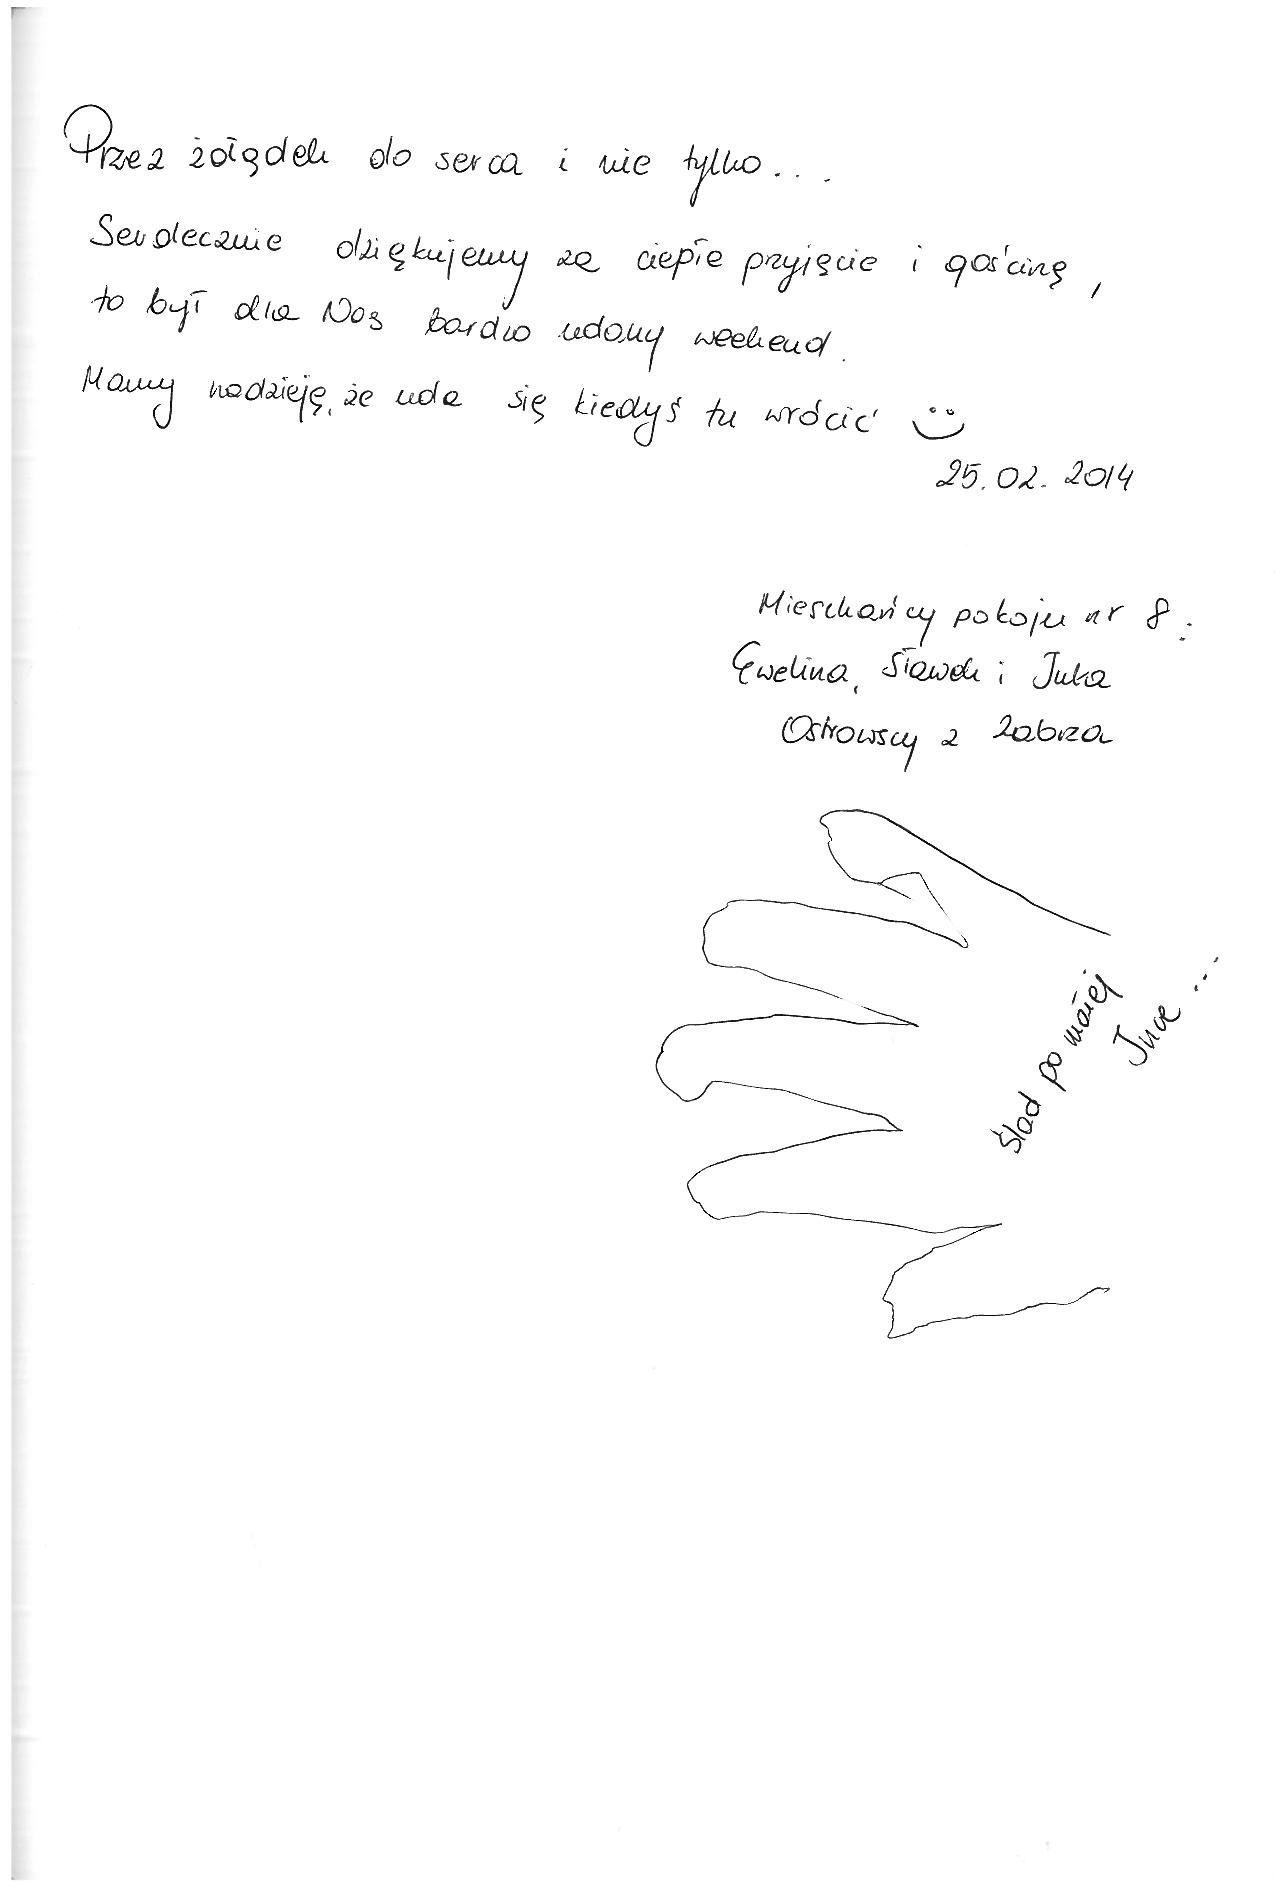 Przez żołądek do serca i nie tylko...
Serdecznie dziękujemy za ciepłe przyjęcie i gościnę,
to był dla Nas bardzo udany weekend.
Mamy nadzieję, że uda się kiedyś tu wrócić
25.02.2014
Mieszkańcy pokoju nr 8:
Ewelina, Sławek i Inka
Ostrowscy z Zabrza
Ślad po małej
Ince...